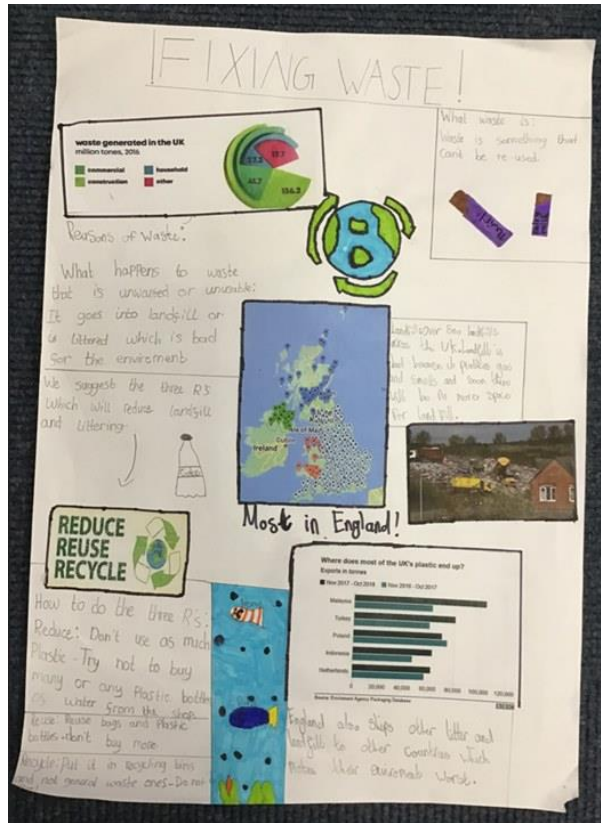 !FIXING WASTE!
waste generated in the UK
million tones, 2016
commercial
household
construction
other
27.3
13.7
41.7
136.2
What waste is:
Waste is something that
cant be re-used
Reasons of Waste:
What happens to waste
that is unwanted or unusable:
It goes into landfill or
is littered which is bad
for the enviroment
We suggest the three R's
which will reduce landfill
and littering
across the UK. Landfills is
bad because it
and smells and soon there
will be no more space
for landfill.
Ireland
Dublin
Isle of Man
Most in England!
REDUCE
REUSE
RECYCLE
How to do the three R's:
Reduce: Don't use as much
Plastic - Try not to buy
many or any Plastic bottles
of water from the shop
Reuse: Reuse bags and Plastic
bottles - don't buy more
Recycle: Put it in recycling bins
and not general waste ones - Do not
Where does most of the UK's plastic end up?
Exports in tonnes
Nov 2017 - Oct 2018
Nov 2016 - Oct 2017
Malaysia
Turkey
Poland
Indonesia
Netherlands
0
20,000
40,000
60,000
80,000
100,000
120,000
Source: Environment Agency Packaging Database
BBC
England also ships other litter and
landfills to other countries which
makes their enviroment worst.